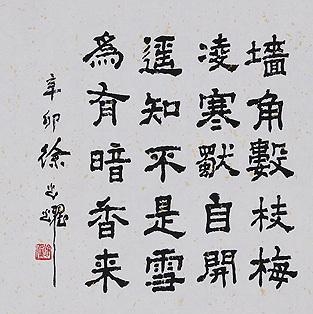 墙角數枝梅
凌寒獨自開
遥知不是雪
為有暗香来
辛卯徐